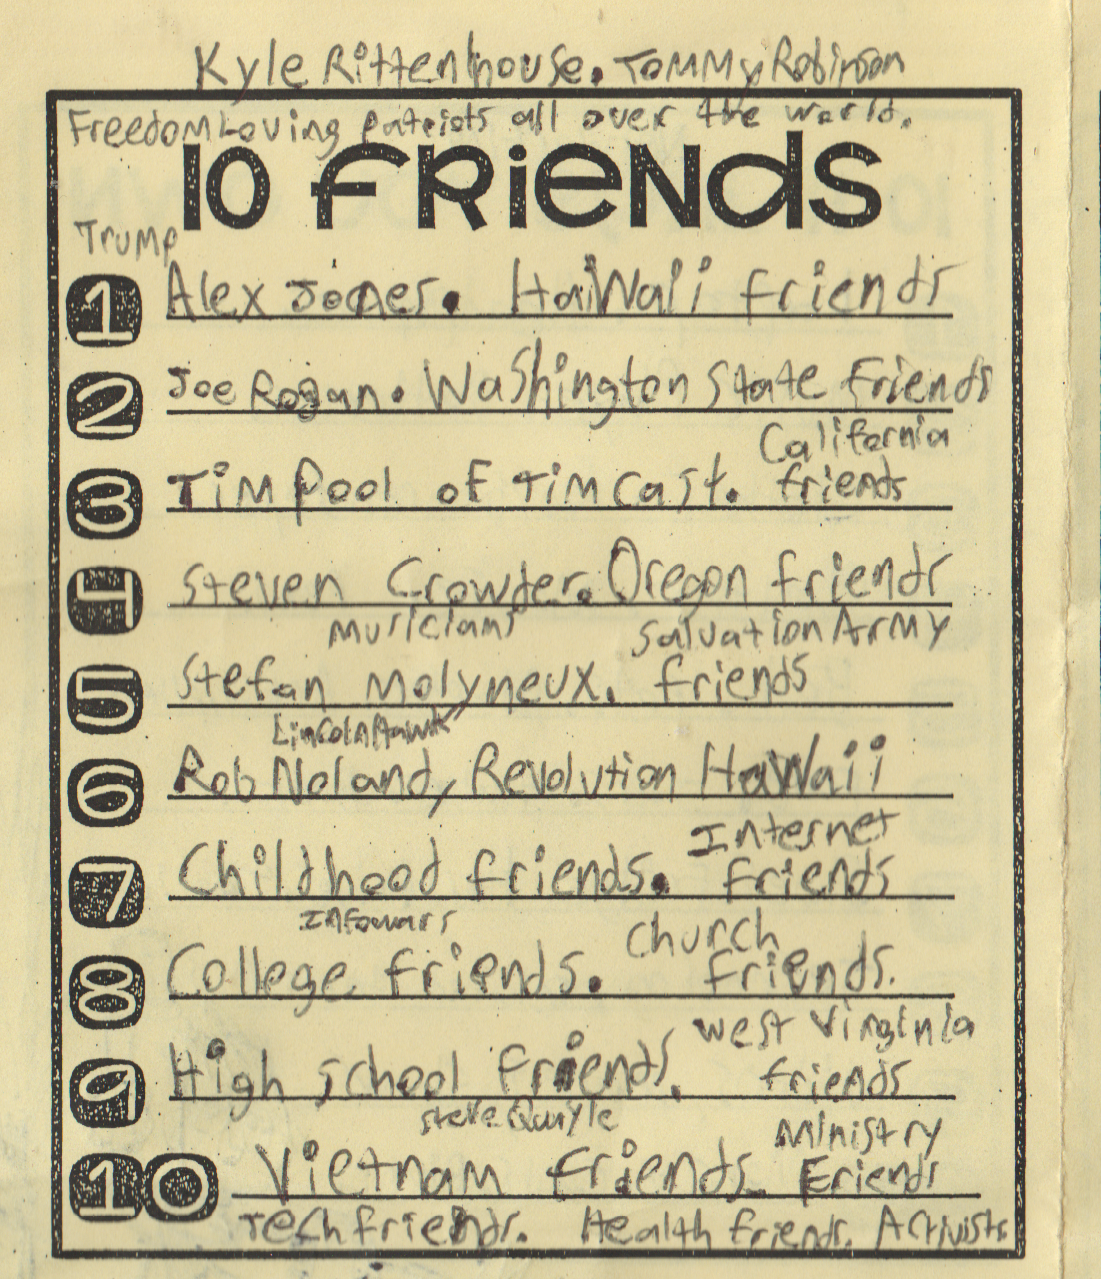 Kyle Rittenhouse. Tommy Robinson
Freedom Loving patriots all over the world.
10 FRiENdS
Trump
1 Alex Jones. HaiWaii friends
2 Joe Rogan. Washington State Friends
California
3 Tim Pool of Timcast. friends
4 Steven Crowder. Oregon friends
musicians Salvation Army
5 Stefan Molyneux. friends
LincolnHawk
6 Rob Noland, Revolution HaWaii
Internet
7 Childhood friends. friends
Infowars church
8 College friends. friends.
West Virginia
9 High school friends. friends
Steve Quayle Ministry
10 Vietnam friends Friends
Tech friends. Health friends. Activists